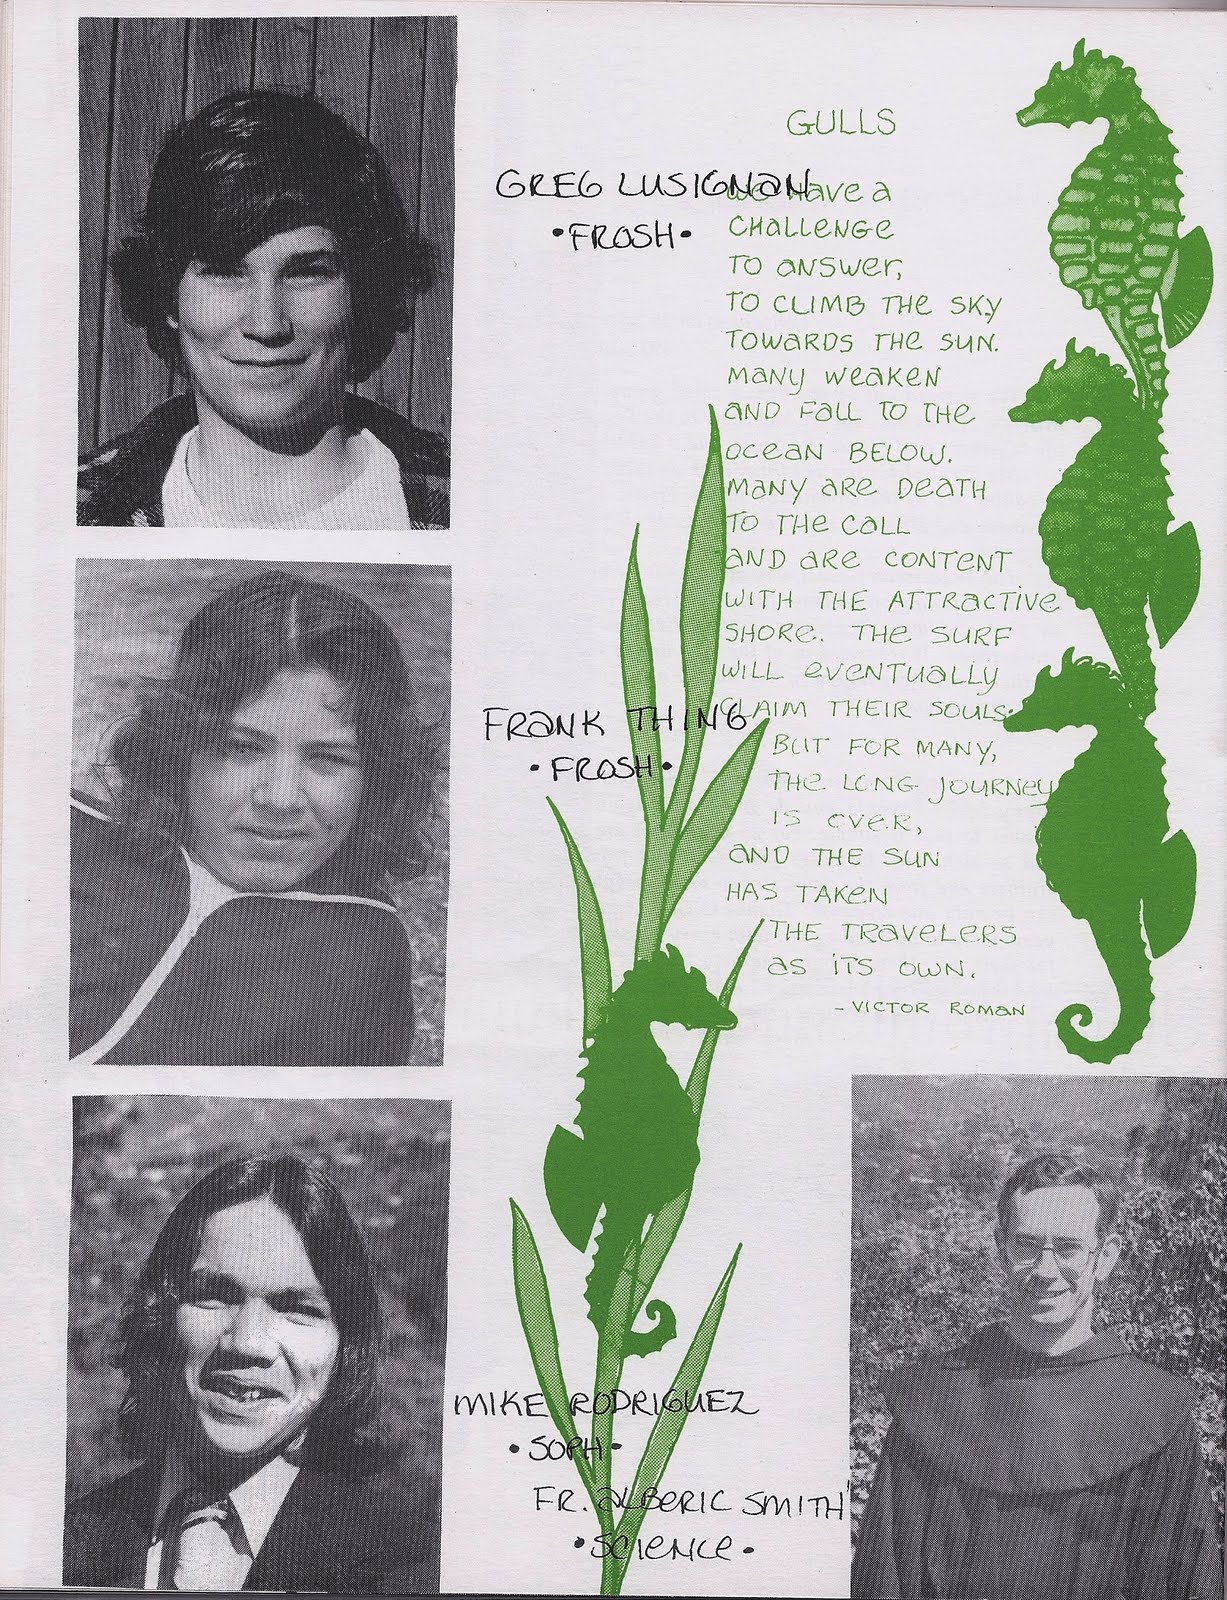 GULLS
GREG LUSIGNAN
•FROSH•
We Have a
CHALLENGE
TO ANSWER,
TO CLIMB THE SKY
TOWARDS THE SUN.
MANY WEAKEN
AND FALL TO THE
OCEAN BELOW.
MANY ARE DEATH
TO THE CALL
AND ARE CONTENT
WITH THE ATTRACTIVE
SHORE. THE SURF
WILL EVENTUALLY
CLAIM THEIR SOULS.
FRANK THING
•FROSH•
BUT FOR MANY,
THE LONG JOURNEY
IS OVER,
AND THE SUN
HAS TAKEN
THE TRAVELERS
AS ITS OWN.
- VICTOR ROMAN
MIKE RODRIGUEZ
•SOPH•
FR. ALBERIC SMITH
•SCIENCE•